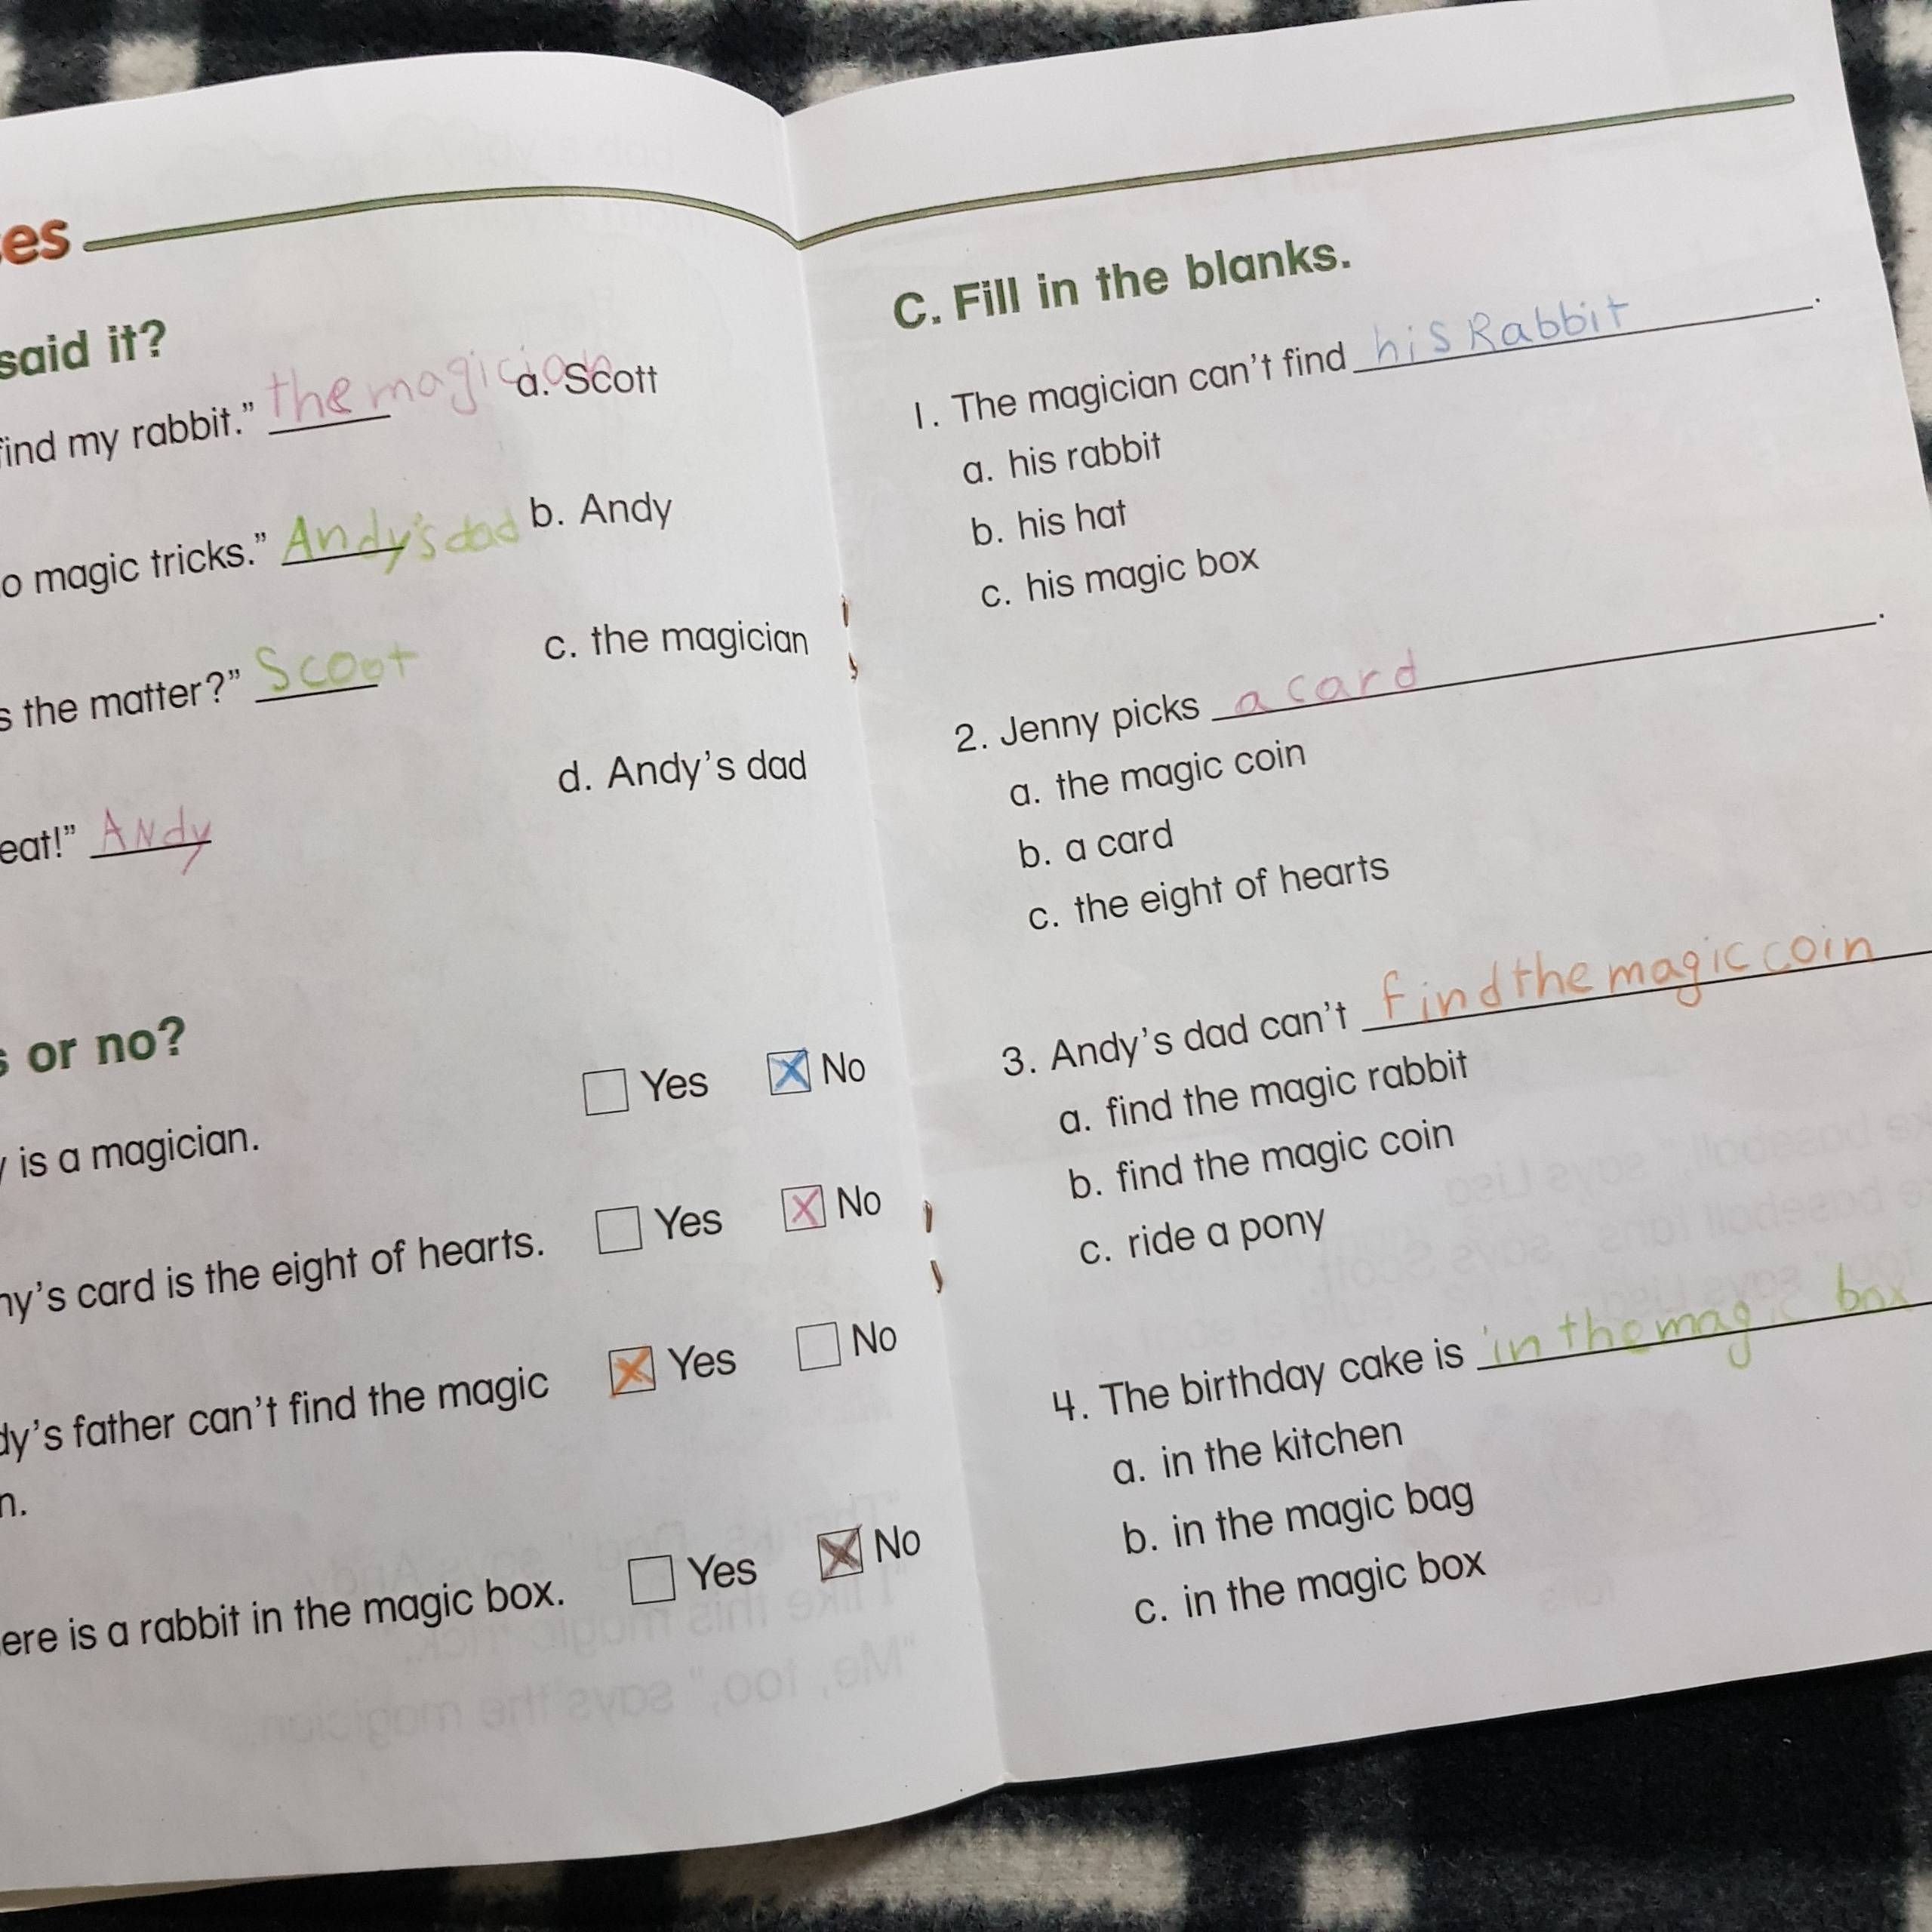 es
said it?
find my rabbit." the magician a. Scott
o magic tricks." Andy's dad b. Andy
s the matter?" Scoot c. the magician
d. Andy's dad
eat!" ANdy
s or no?
y is a magician. Yes No
ny's card is the eight of hearts. Yes No
dy's father can't find the magic Yes No
n.
ere is a rabbit in the magic box. Yes No
C. Fill in the blanks.
1. The magician can't find his Rabbit.
a. his rabbit
b. his hat
c. his magic box
2. Jenny picks a card.
a. the magic coin
b. a card
c. the eight of hearts
3. Andy's dad can't find the magic coin
a. find the magic rabbit
b. find the magic coin
c. ride a pony
4. The birthday cake is in the magic box
a. in the kitchen
b. in the magic bag
c. in the magic box